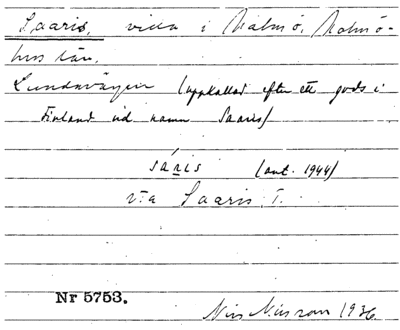 Saaris, villa i Malmö, Malmö-
hus län.
Lundavägen (uppkallad efter ett gods i
Finland vid namn Saaris)
sáris (ant. 1944)
via Saaris T.
Nr 5753.
Nils Nilsson 1936.